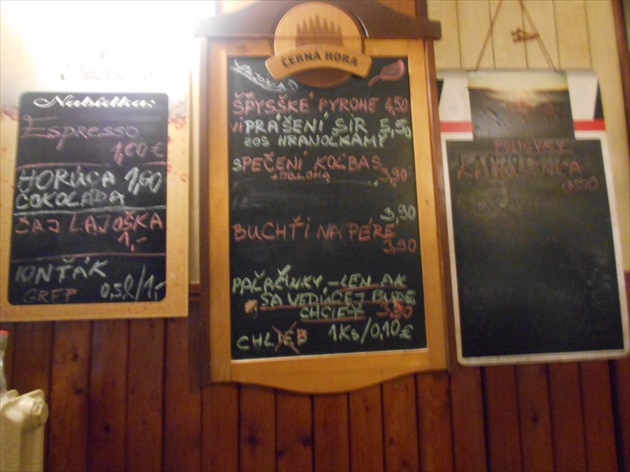 Nabídka:
Espresso
1,60 €
HORÚCA 1,60
ČOKOLÁDA
ČAJ LAJOŠKA
1,-
KINŤÁK
GREP 0,5l/1,-
ČERNÁ HORA
ŠPYSŠKÉ PYROHE 4,50
VIPRÁŠENÍ SIR 5,50
ZOS HRANOLKAMY
SPEČENÍ KOLBAS
+OBLOHA 3,90
3,90
BUCHŤI NA PÉRE
3,90
PAČAČINKY - LEN AK
SA VEDÚCEJ BUDE
CHCIEŤ 3,80
CHLIEB 1Ks/0,10€
POLIEVKY
KAPUSNICA